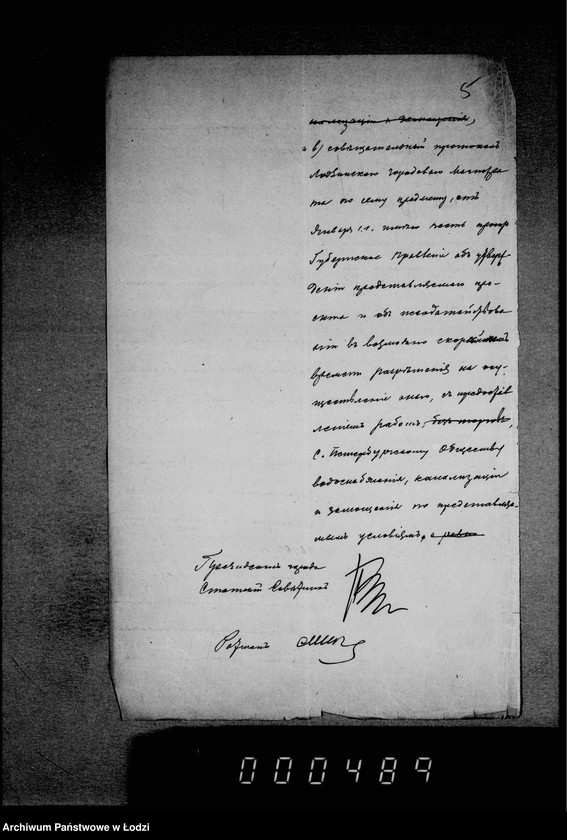 5
канализаціи и замощенія,
в) совѣщательный протоколъ
Лодзинскаго городоваго Магистра
та по сему предмету, отъ
Января с.г. имѣю честь просить
Губернское Правленіе объ утверж
деніи представляемаго про-
екта и объ исходатайствова
ніи въ возможно скорѣйшемъ
времени разрѣшенія на осу-
ществленіе онаго, съ предостав
леніемъ работъ, безъ торговъ,
С. Петербургскому Обществу
водоснабженія, канализаціи
и замощенія по представляе-
мымъ условіямъ, а равно
Президентъ города
Статскій Совѣтникъ
000489
Archiwum Państwowe w Łodzi